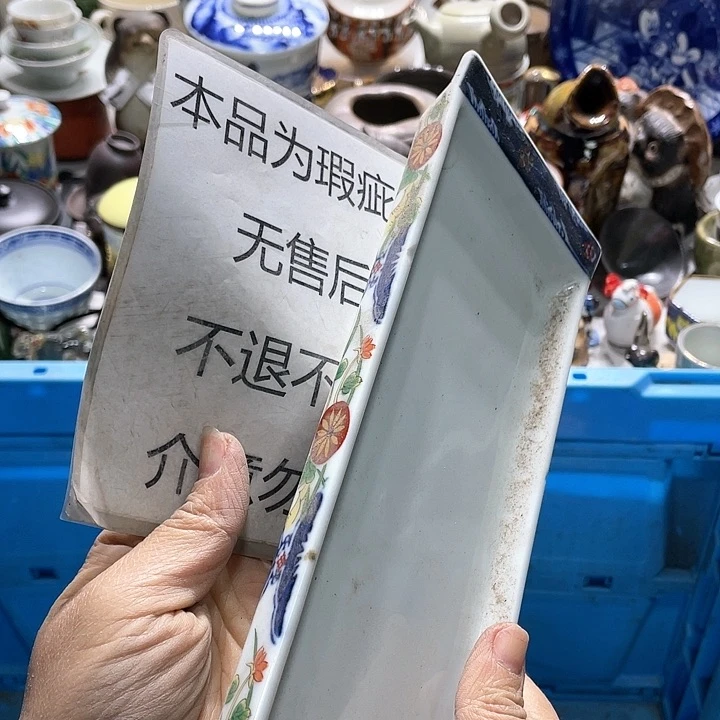 本品为瑕疵
无售后
不退不
介 勿